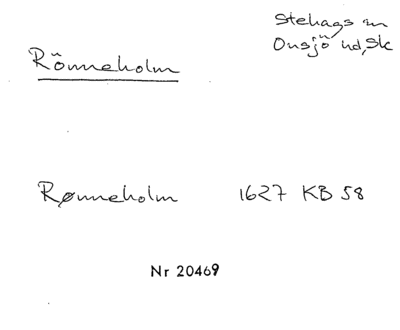 Rönneholm
Stehags sn
Onsjö hd, Sk
Rønneholm 1627 KB 58
Nr 20469